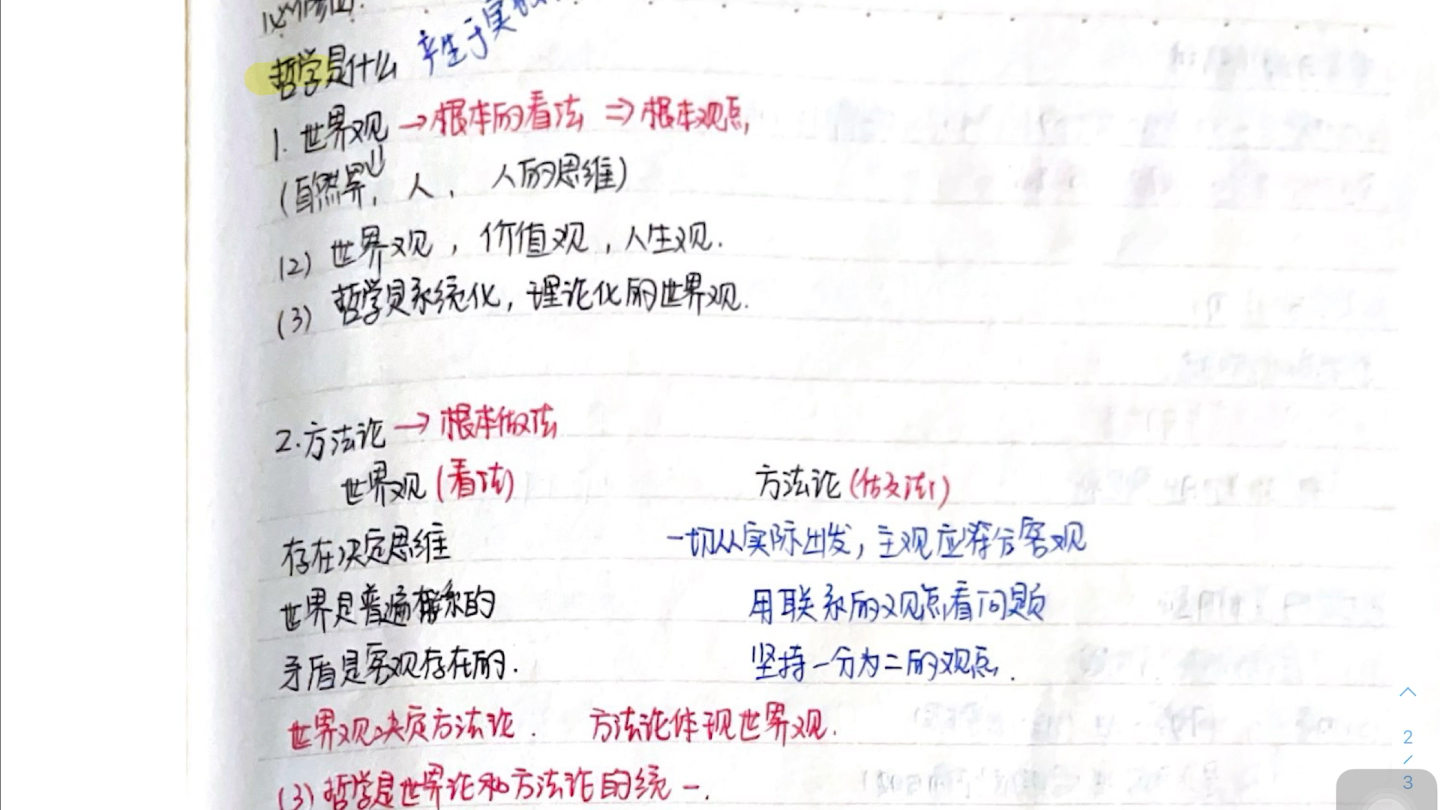 哲学是什么 产生于实
1. 世界观→根本的看法⇒根本观点,
(自然界, 人, 人的思维)
(2) 世界观, 价值观, 人生观.
(3) 哲学是系统化, 理论化的世界观.
2.方法论→根本做法
世界观(看法) 方法论(做法)
存在决定思维 一切从实际出发, 主观应符合客观
世界是普遍联系的 用联系的观点看问题
矛盾是客观存在的. 坚持一分为二的观点.
世界观决定方法论. 方法论体现世界观.
(3)哲学是世界论和方法论的统一.
2
3